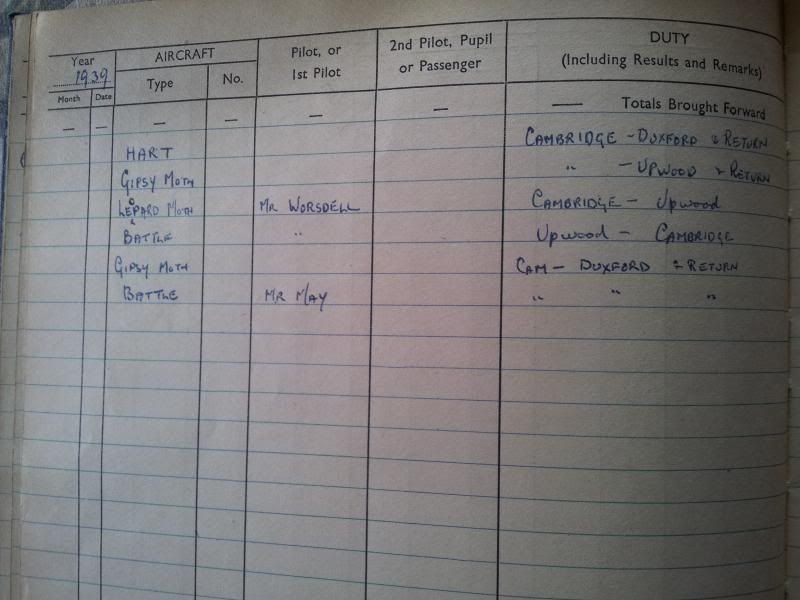 Year AIRCRAFT Pilot, or 2nd Pilot, Pupil DUTY
1939 1st Pilot or Passenger (Including Results and Remarks)
Month Date Type No.
— — — — — — — Totals Brought Forward
HART CAMBRIDGE - DUXFORD & RETURN
GIPSY MOTH " - UPWOOD & RETURN
LEOPARD MOTH MR WORSDELL CAMBRIDGE - Upwood
BATTLE " Upwood - CAMBRIDGE
GIPSY MOTH CAM - DUXFORD & RETURN
BATTLE MR MAY " " "